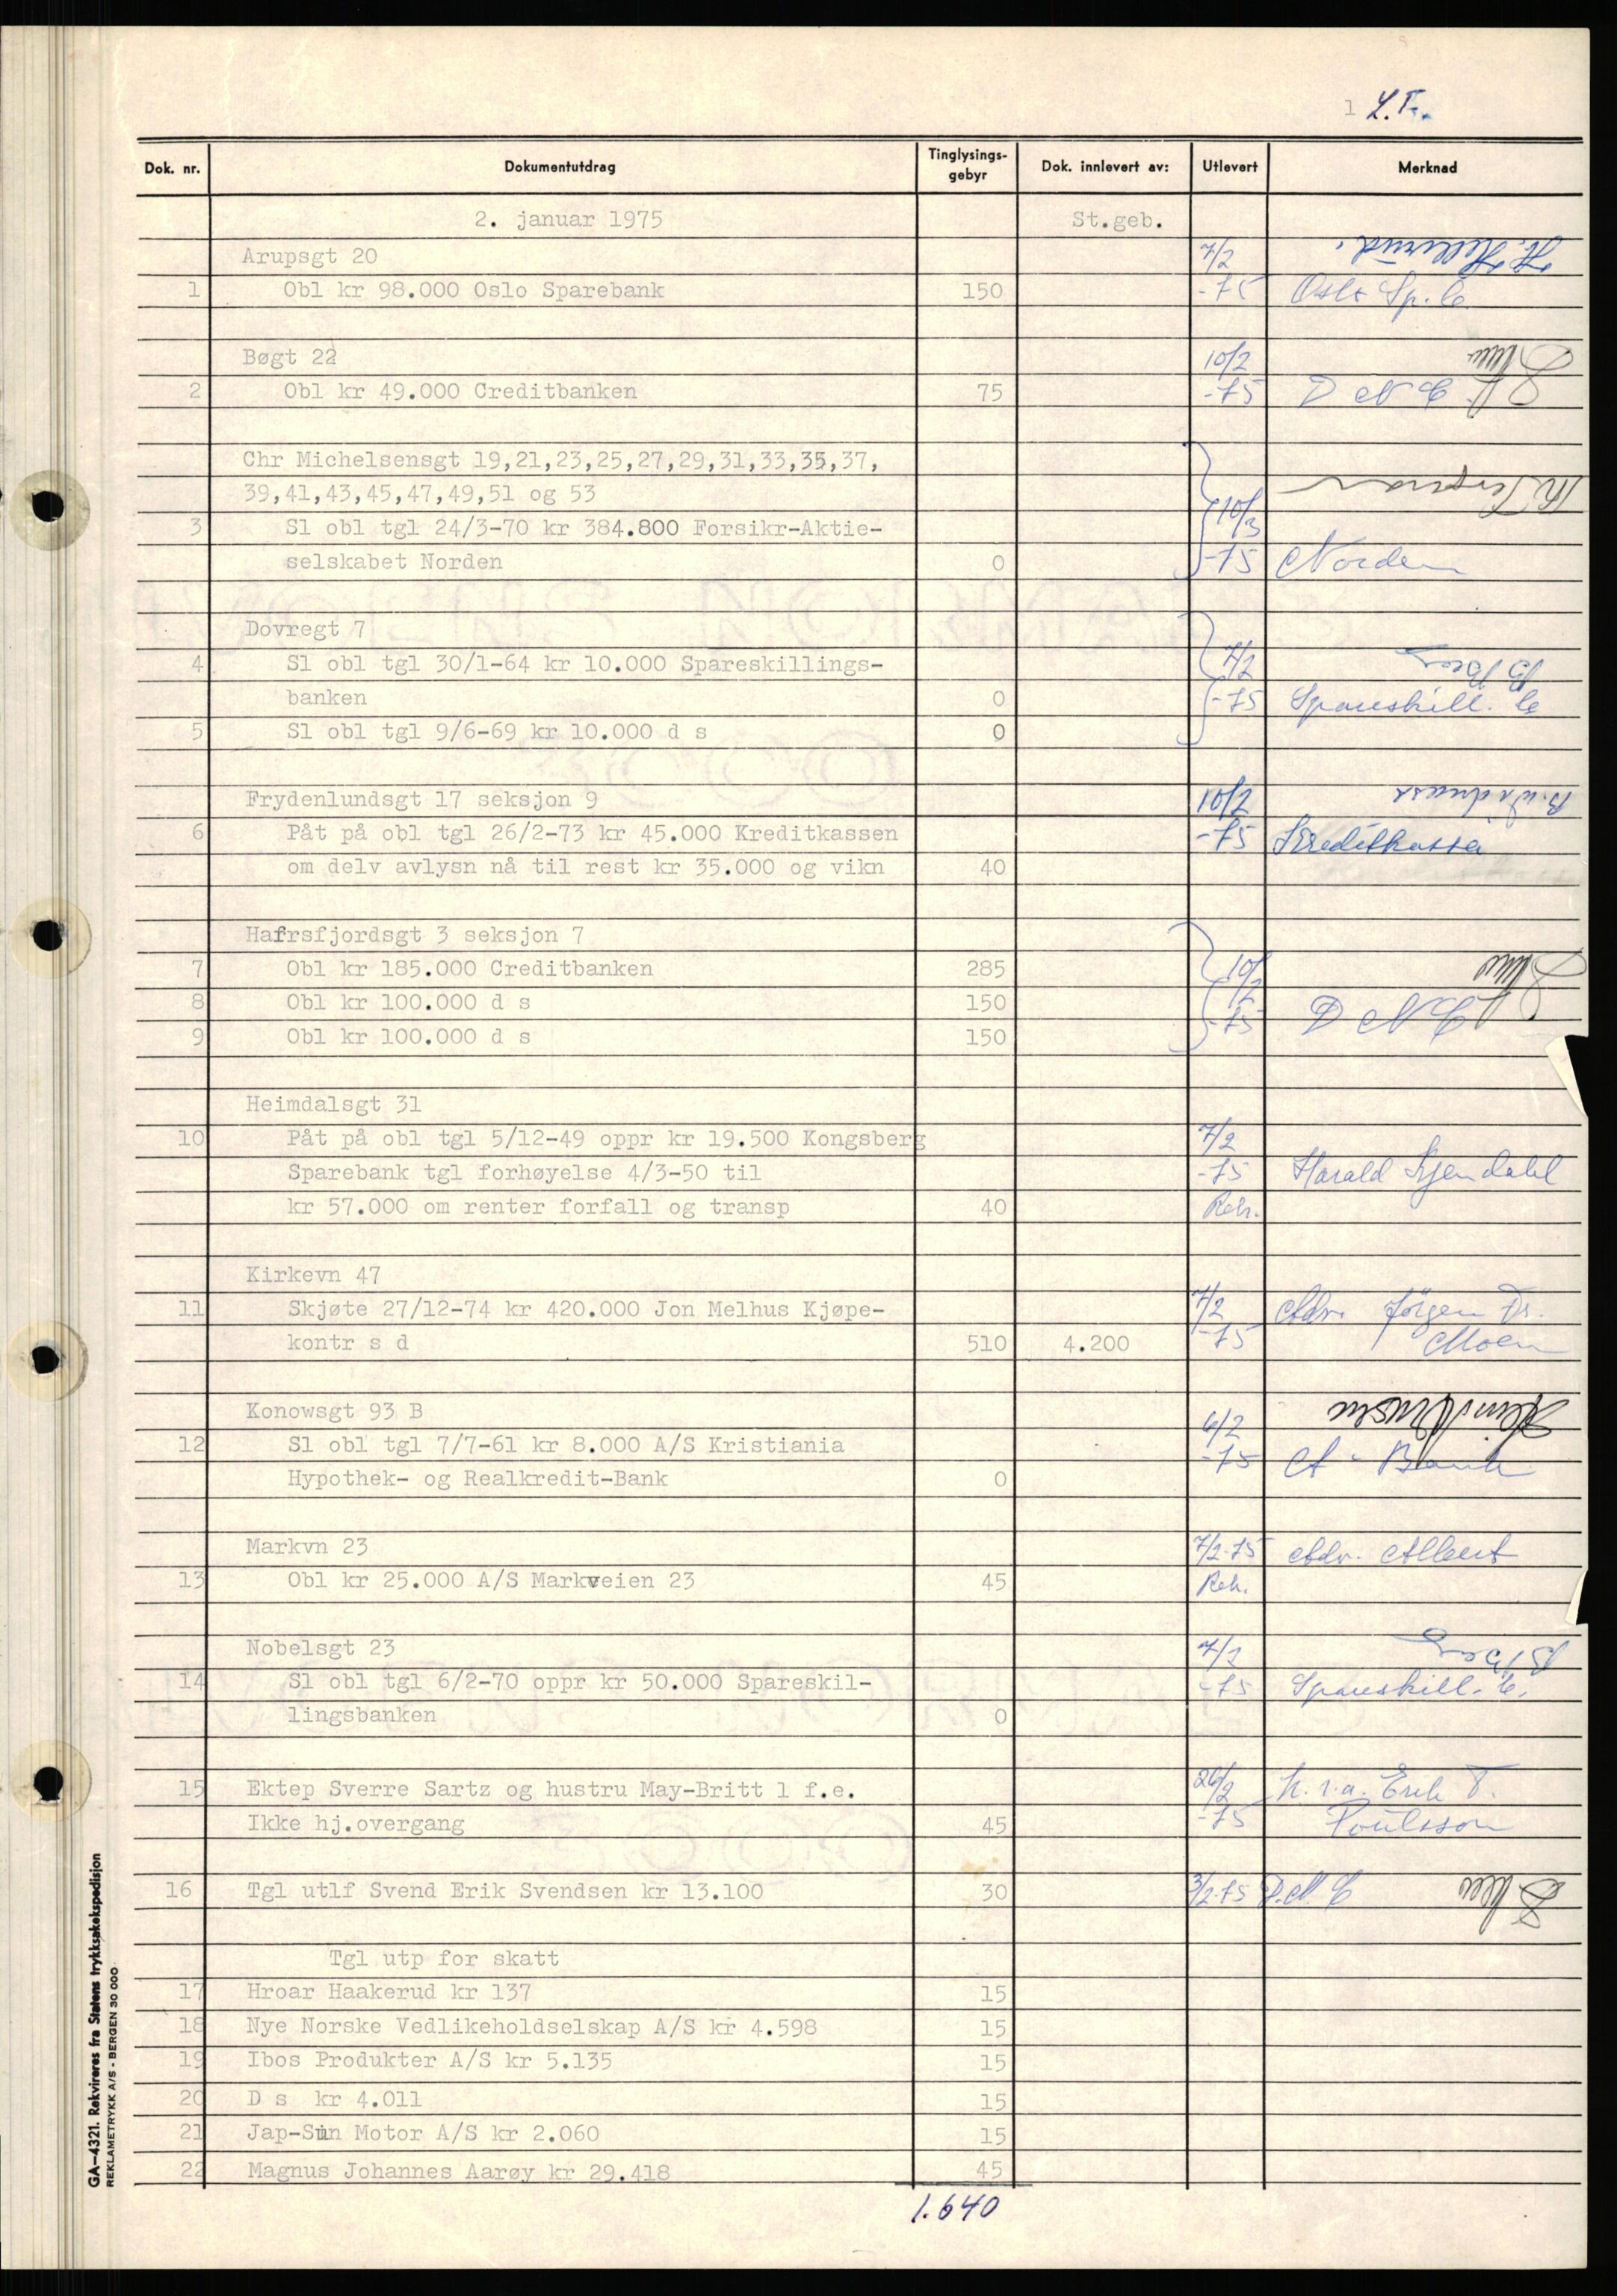 1 L.T.
Dok. nr. Dokumentutdrag Tinglysings-gebyr Dok. innlevert av: Utlevert Merknad
2. januar 1975 St.geb.
Arupsgt 20 7/2 H. Hellerud.
1 Obl kr 98.000 Oslo Sparebank 150 -75 Oslo Sp.b.
Bøgt 22 10/2
2 Obl kr 49.000 Creditbanken 75 -75 D N C
Chr Michelsensgt 19,21,23,25,27,29,31,33,35,37,
39,41,43,45,47,49,51 og 53
3 Sl obl tgl 24/3-70 kr 384.800 Forsikr-Aktie- 10/3
selskabet Norden 0 -75 Norden
Dovregt 7
4 Sl obl tgl 30/1-64 kr 10.000 Spareskillings- 7/2 B Berg
banken 0 -75 Spareskill. b
5 Sl obl tgl 9/6-69 kr 10.000 d s 0
Frydenlundsgt 17 seksjon 9 10/2
6 Påt på obl tgl 26/2-73 kr 45.000 Kreditkassen -75 Kreditkassa
om delv avlysn nå til rest kr 35.000 og vikn 40
Hafrsfjordsgt 3 seksjon 7
7 Obl kr 185.000 Creditbanken 285 10/2
8 Obl kr 100.000 d s 150 -75 D N C
9 Obl kr 100.000 d s 150
Heimdalsgt 31
10 Påt på obl tgl 5/12-49 oppr kr 19.500 Kongsberg 7/2
Sparebank tgl forhøyelse 4/3-50 til -75 Harald Kjendahl
kr 57.000 om renter forfall og transp 40 Rek.
Kirkevn 47
11 Skjøte 27/12-74 kr 420.000 Jon Melhus Kjøpe- 7/2 Adv. Jörgen Fr.
kontr s d 510 4.200 -75 Moen
Konowsgt 93 B 6/2
12 Sl obl tgl 7/7-61 kr 8.000 A/S Kristiania -75 A - Bank
Hypothek- og Realkredit-Bank 0
Markvn 23 7/2-75 Adv. Albert
13 Obl kr 25.000 A/S Markveien 23 45 Rek.
Nobelsgt 23 7/2 B Berg
14 Sl obl tgl 6/2-70 oppr kr 50.000 Spareskil- -75 Spareskill. b.
lingsbanken 0
15 Ektep Sverre Sartz og hustru May-Britt l f.e. 26/2 h.r.a. Erik T.
Ikke hj.overgang 45 -75 Poulsson
16 Tgl utlf Svend Erik Svendsen kr 13.100 30 3/2-75 D.N.C
Tgl utp for skatt
17 Hroar Haakerud kr 137 15
18 Nye Norske Vedlikeholdselskap A/S kr 4.598 15
19 Ibos Produkter A/S kr 5.135 15
20 D s kr 4.011 15
21 Jap-Sun Motor A/S kr 2.060 15
22 Magnus Johannes Aarøy kr 29.418 45
1.640
GA-4321. Rekvireres fra Statens trykksakekspedisjon
REKLAMETRYKK A/S - BERGEN 30 000